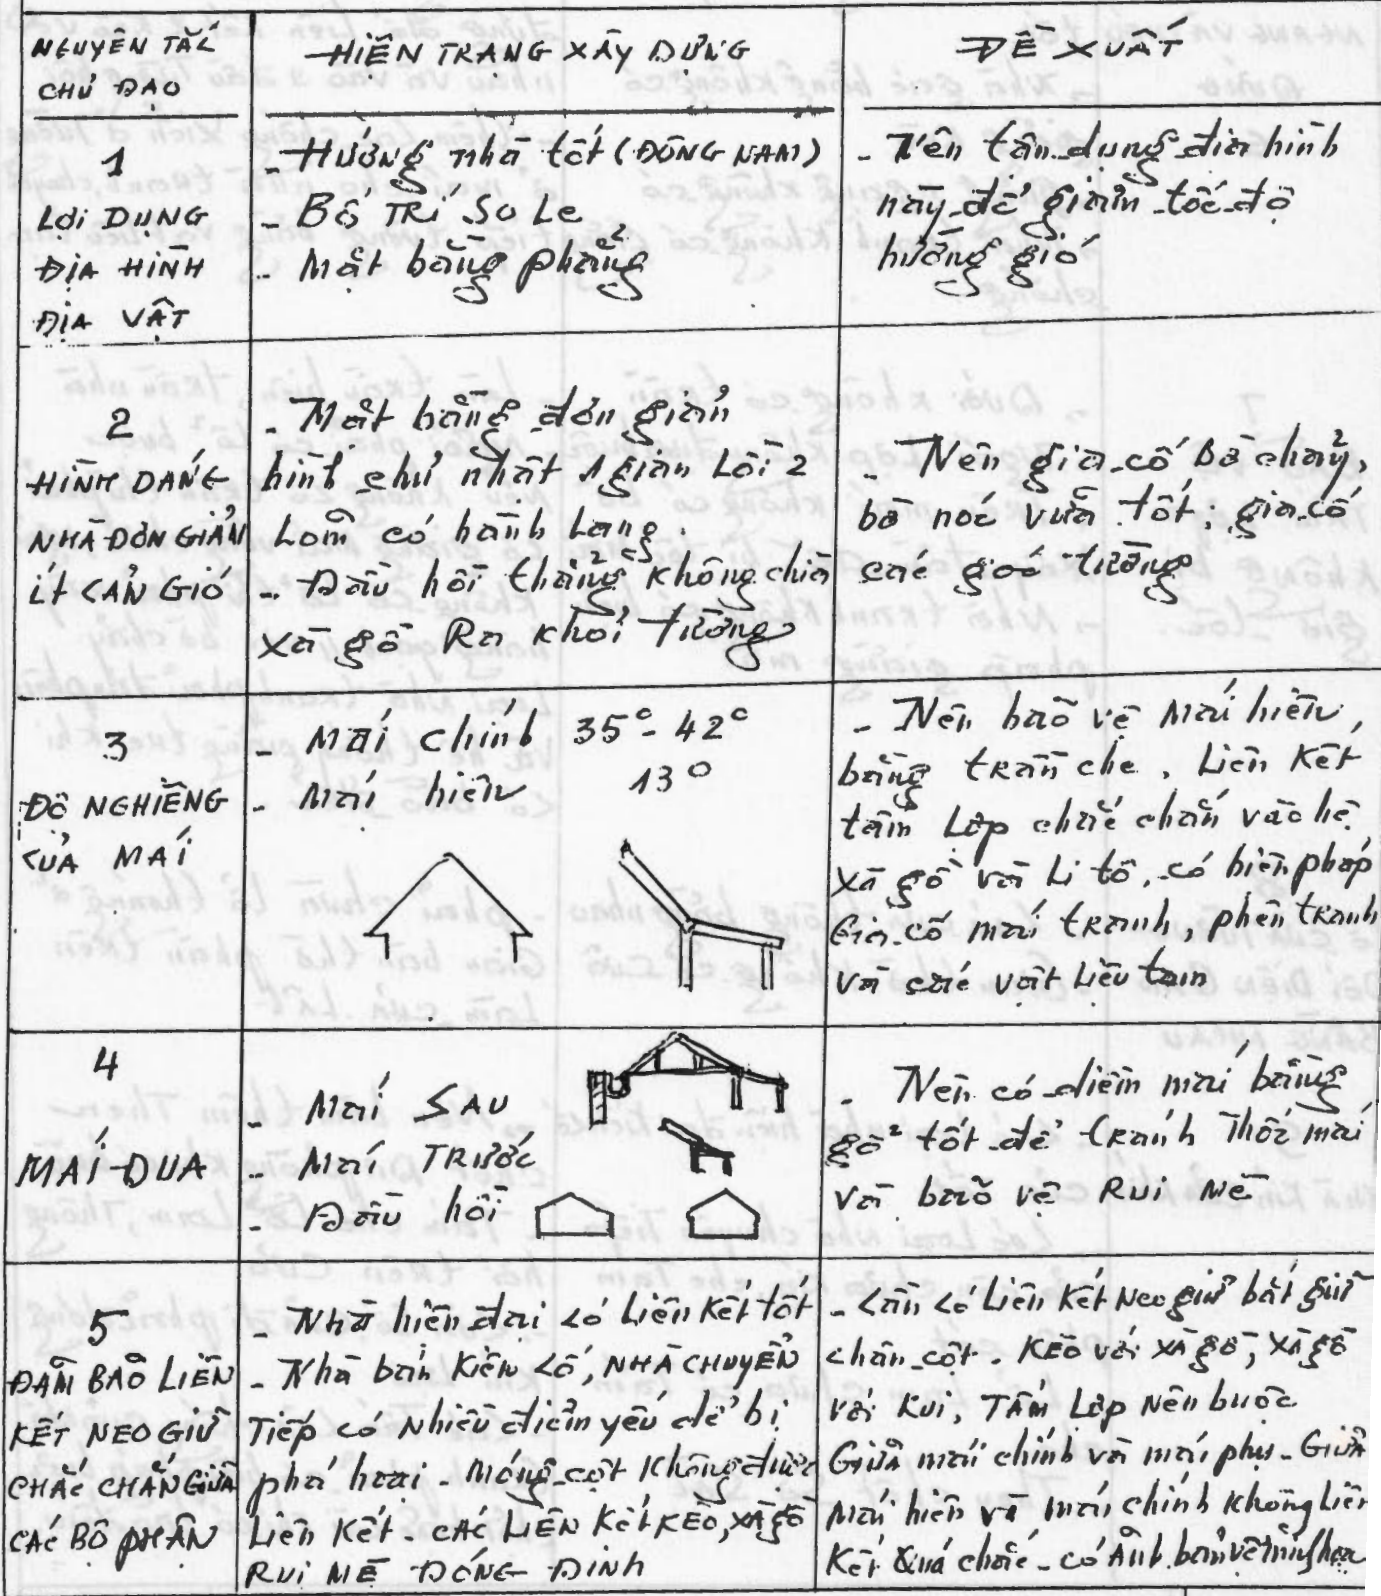 NGUYÊN TẮC
CHỦ ĐẠO
HIỆN TRẠNG XÂY DỰNG
ĐỀ XUẤT
1
LỢI DỤNG
ĐỊA HÌNH
ĐỊA VẬT
- Hướng nhà tốt (ĐÔNG NAM)
- Bố TRÍ So Le
- Mặt bằng phẳng
- Nên tận dụng địa hình
này để giảm tốc độ
hướng gió
2
HÌNH DÁNG
NHÀ ĐƠN GIẢN
ÍT CẢN GIÓ
- Mặt bằng đơn giản
hình chữ nhật 1 gian Lồi 2
Lõm có hành Lang.
- Đầu hồi thẳng không chìa
xà gồ Ra khỏi tường
- Nên gia cố bờ chảy,
bờ nóc vữa tốt; gia cố
các góc tường
3
ĐỘ NGHIÊNG
CỦA MÁI
- Mái chính 35° - 42°
- Mái hiên 13°
- Nên bảo vệ Mái hiên,
bằng trần che. Liên kết
tấm Lợp chắc chắn vào hệ
xà gồ và Li tô, có biện pháp
Gia cố mái tranh, phên tranh
và các vật Liệu tạm
4
MÁI ĐUA
- Mái SAU
- Mái TRước
- Đầu hồi
- Nên có diềm mái bằng
gỗ tốt để tránh Thốc mái
và bảo vệ RUI Mè
5
ĐẢM BẢO LIÊN
KẾT NEO GIỮ
CHẮC CHẮN GIỮA
CÁC BỘ PHẬN
- Nhà hiện đại có Liên kết tốt
- Nhà bán kiên cố, NHÀ CHUYỂN
Tiếp có Nhiều điểm yếu dễ bị
phá hoại - Móng cột không được
Liên kết - CÁC LIÊN kết KÈO, XÀ gồ
RUI MÈ ĐÓNG ĐINH
- Cần có Liên kết Neo giữ bắt giữ
chân cột. KÈO với xà gồ, xà gồ
với Rui, TẤM Lợp Nên buộc
Giữa mái chính và mái phụ - Giữa
Mái hiên và mái chính không Liên
kết quá chắc - có Ảnh, bản vẽ minh họa